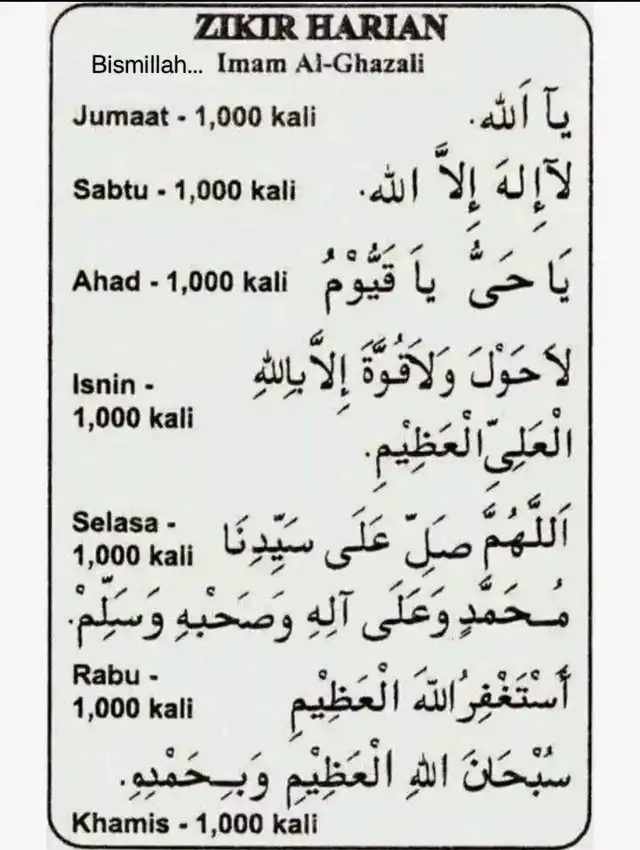 ZIKIR HARIAN
Bismillah... Imam Al-Ghazali
Jumaat - 1,000 kali يآ اَلله.
Sabtu - 1,000 kali لآإِلهَ إِلاَّ الله.
Ahad - 1,000 kali يَا حَىُّ ياَ قَيُّوْمُ
Isnin - لاَحَوْلَ وَلاَقُوَّةَ إِلاَّبِاللهِ
1,000 kali
الْعَلِىِّ الْعَظِيْمِ.
Selasa - اَللَّهُمَّ صَلِّ عَلَى سَيِّدِنَا
1,000 kali
مُحَمَّدٍ وَعَلَى آلِهِ وَصَحْبِهِ وَسَلِّمْ.
Rabu - أَسْتَغْفِرُاللهَ الْعَظِيْمِ
1,000 kali
سُبْحَانَ اللهِ الْعَظِيْمِ وَبِحَمْدِهِ.
Khamis - 1,000 kali